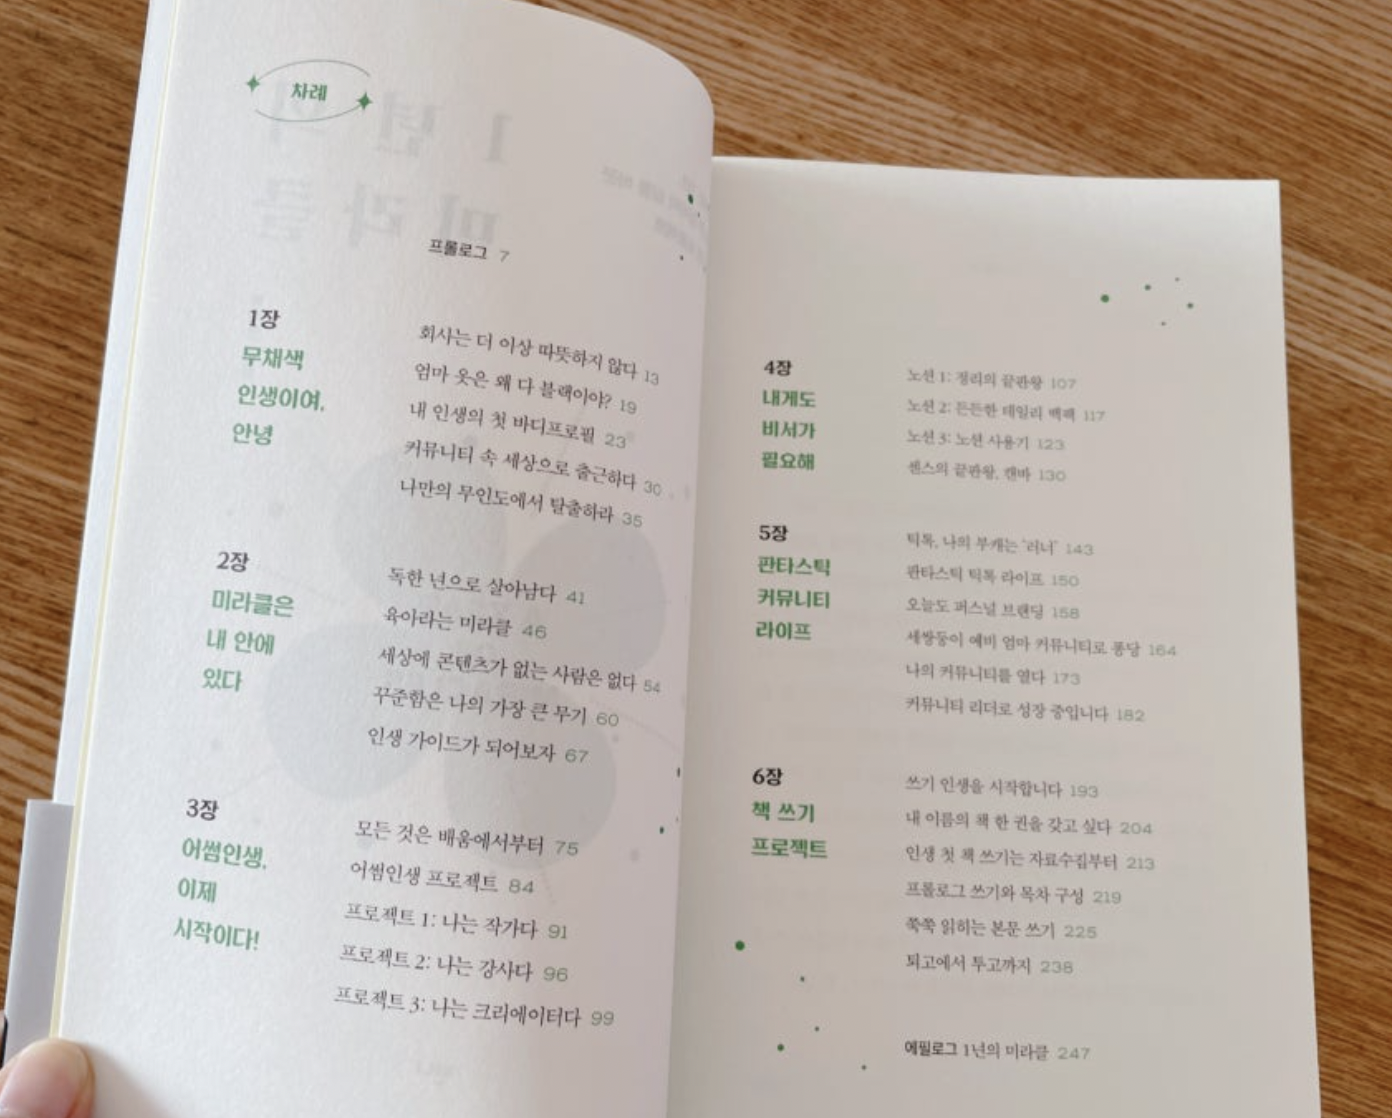 차례
프롤로그 7
1장
무채색
인생이여,
안녕
회사는 더 이상 따뜻하지 않다 13
엄마 옷은 왜 다 블랙이야? 19
내 인생의 첫 바디프로필 23
커뮤니티 속 세상으로 출근하다 30
나만의 무인도에서 탈출하라 35
2장
미라클은
내 안에
있다
독한 년으로 살아남다 41
육아라는 미라클 46
세상에 콘텐츠가 없는 사람은 없다 54
꾸준함은 나의 가장 큰 무기 60
인생 가이드가 되어보자 67
3장
어썸인생,
이제
시작이다!
모든 것은 배움에서부터 75
어썸인생 프로젝트 84
프로젝트 1: 나는 작가다 91
프로젝트 2: 나는 강사다 96
프로젝트 3: 나는 크리에이터다 99
4장
내게도
비서가
필요해
노션 1: 정리의 끝판왕 107
노션 2: 든든한 데일리 백팩 117
노션 3: 노션 사용기 123
센스의 끝판왕, 캔바 130
5장
판타스틱
커뮤니티
라이프
틱톡, 나의 부캐는 '러너' 143
판타스틱 틱톡 라이프 150
오늘도 퍼스널 브랜딩 158
세쌍둥이 예비 엄마 커뮤니티로 퐁당 164
나의 커뮤니티를 열다 173
커뮤니티 리더로 성장 중입니다 182
6장
책 쓰기
프로젝트
쓰기 인생을 시작합니다 193
내 이름의 책 한 권을 갖고 싶다 204
인생 첫 책 쓰기는 자료수집부터 213
프롤로그 쓰기와 목차 구성 219
쭉쭉 읽히는 본문 쓰기 225
퇴고에서 투고까지 238
에필로그 1년의 미라클 247